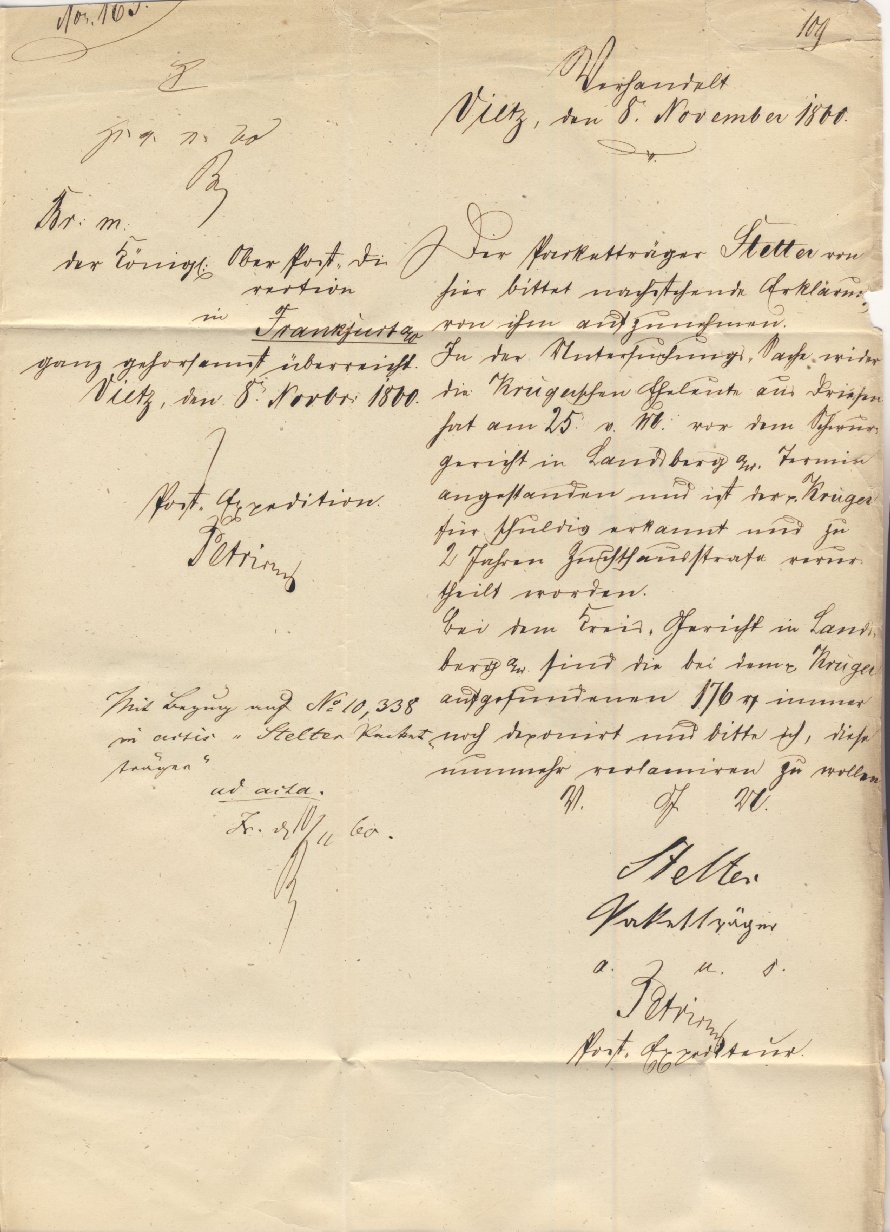 Nor. 163.
109
Verhandelt
Vietz, den 8. November 1860.
Der Packetträger Stelter von
hier bittet nachstehende Erklärung
von ihm aufzunehmen.
In der Untersuchungs-Sache wider
die Krügerschen Eheleute aus Driesen
hat am 25. v. M. vor dem Schwur-
gericht in Landsberg a/w. Termin
angestanden und ist der p. Krüger
für schuldig erkannt und zu
2 Jahren Zuchthausstrafe verur-
theilt worden.
Bei dem Kreis-Gericht in Lands-
berg a/w. sind die bei dem p. Krüger
aufgefundenen 176 rt immer
noch deponirt und bitte ich, diese
nunmehr reclamiren zu wollen
V. G. U.
Stelter
Paketträger
a. u. s.
Petrirus
Post-Expediteur.
Br. m.
der Königl. Ober Post-Di
rection
in Frankfurt a/o
ganz gehorsamst überreicht.
Vietz, den 8. Novbr. 1860.
Post-Expedition.
Petrirus
Mit Bezug auf No 10,338
in actis "Stelter Packet-
träger"
ad acta.
Fr. d. 11 60.